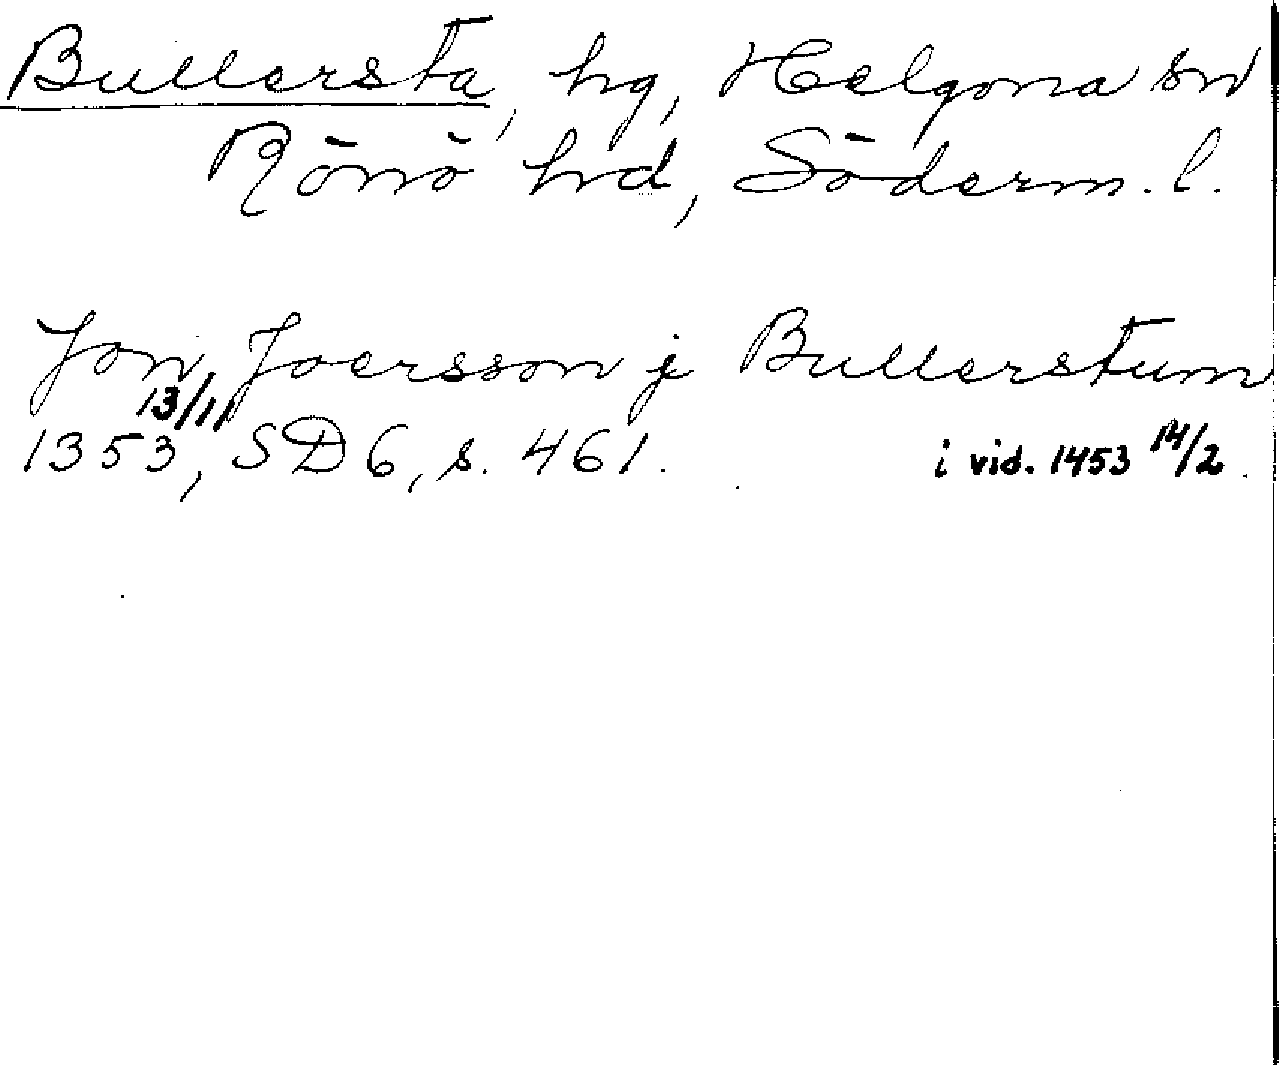 Bullersta, hg, Helgona sn
Rönö hd, Söderm. l.
Jon Joersson j Bullerstum
13/11
1353, SD 6, s. 461. i vid. 1453 14/2.